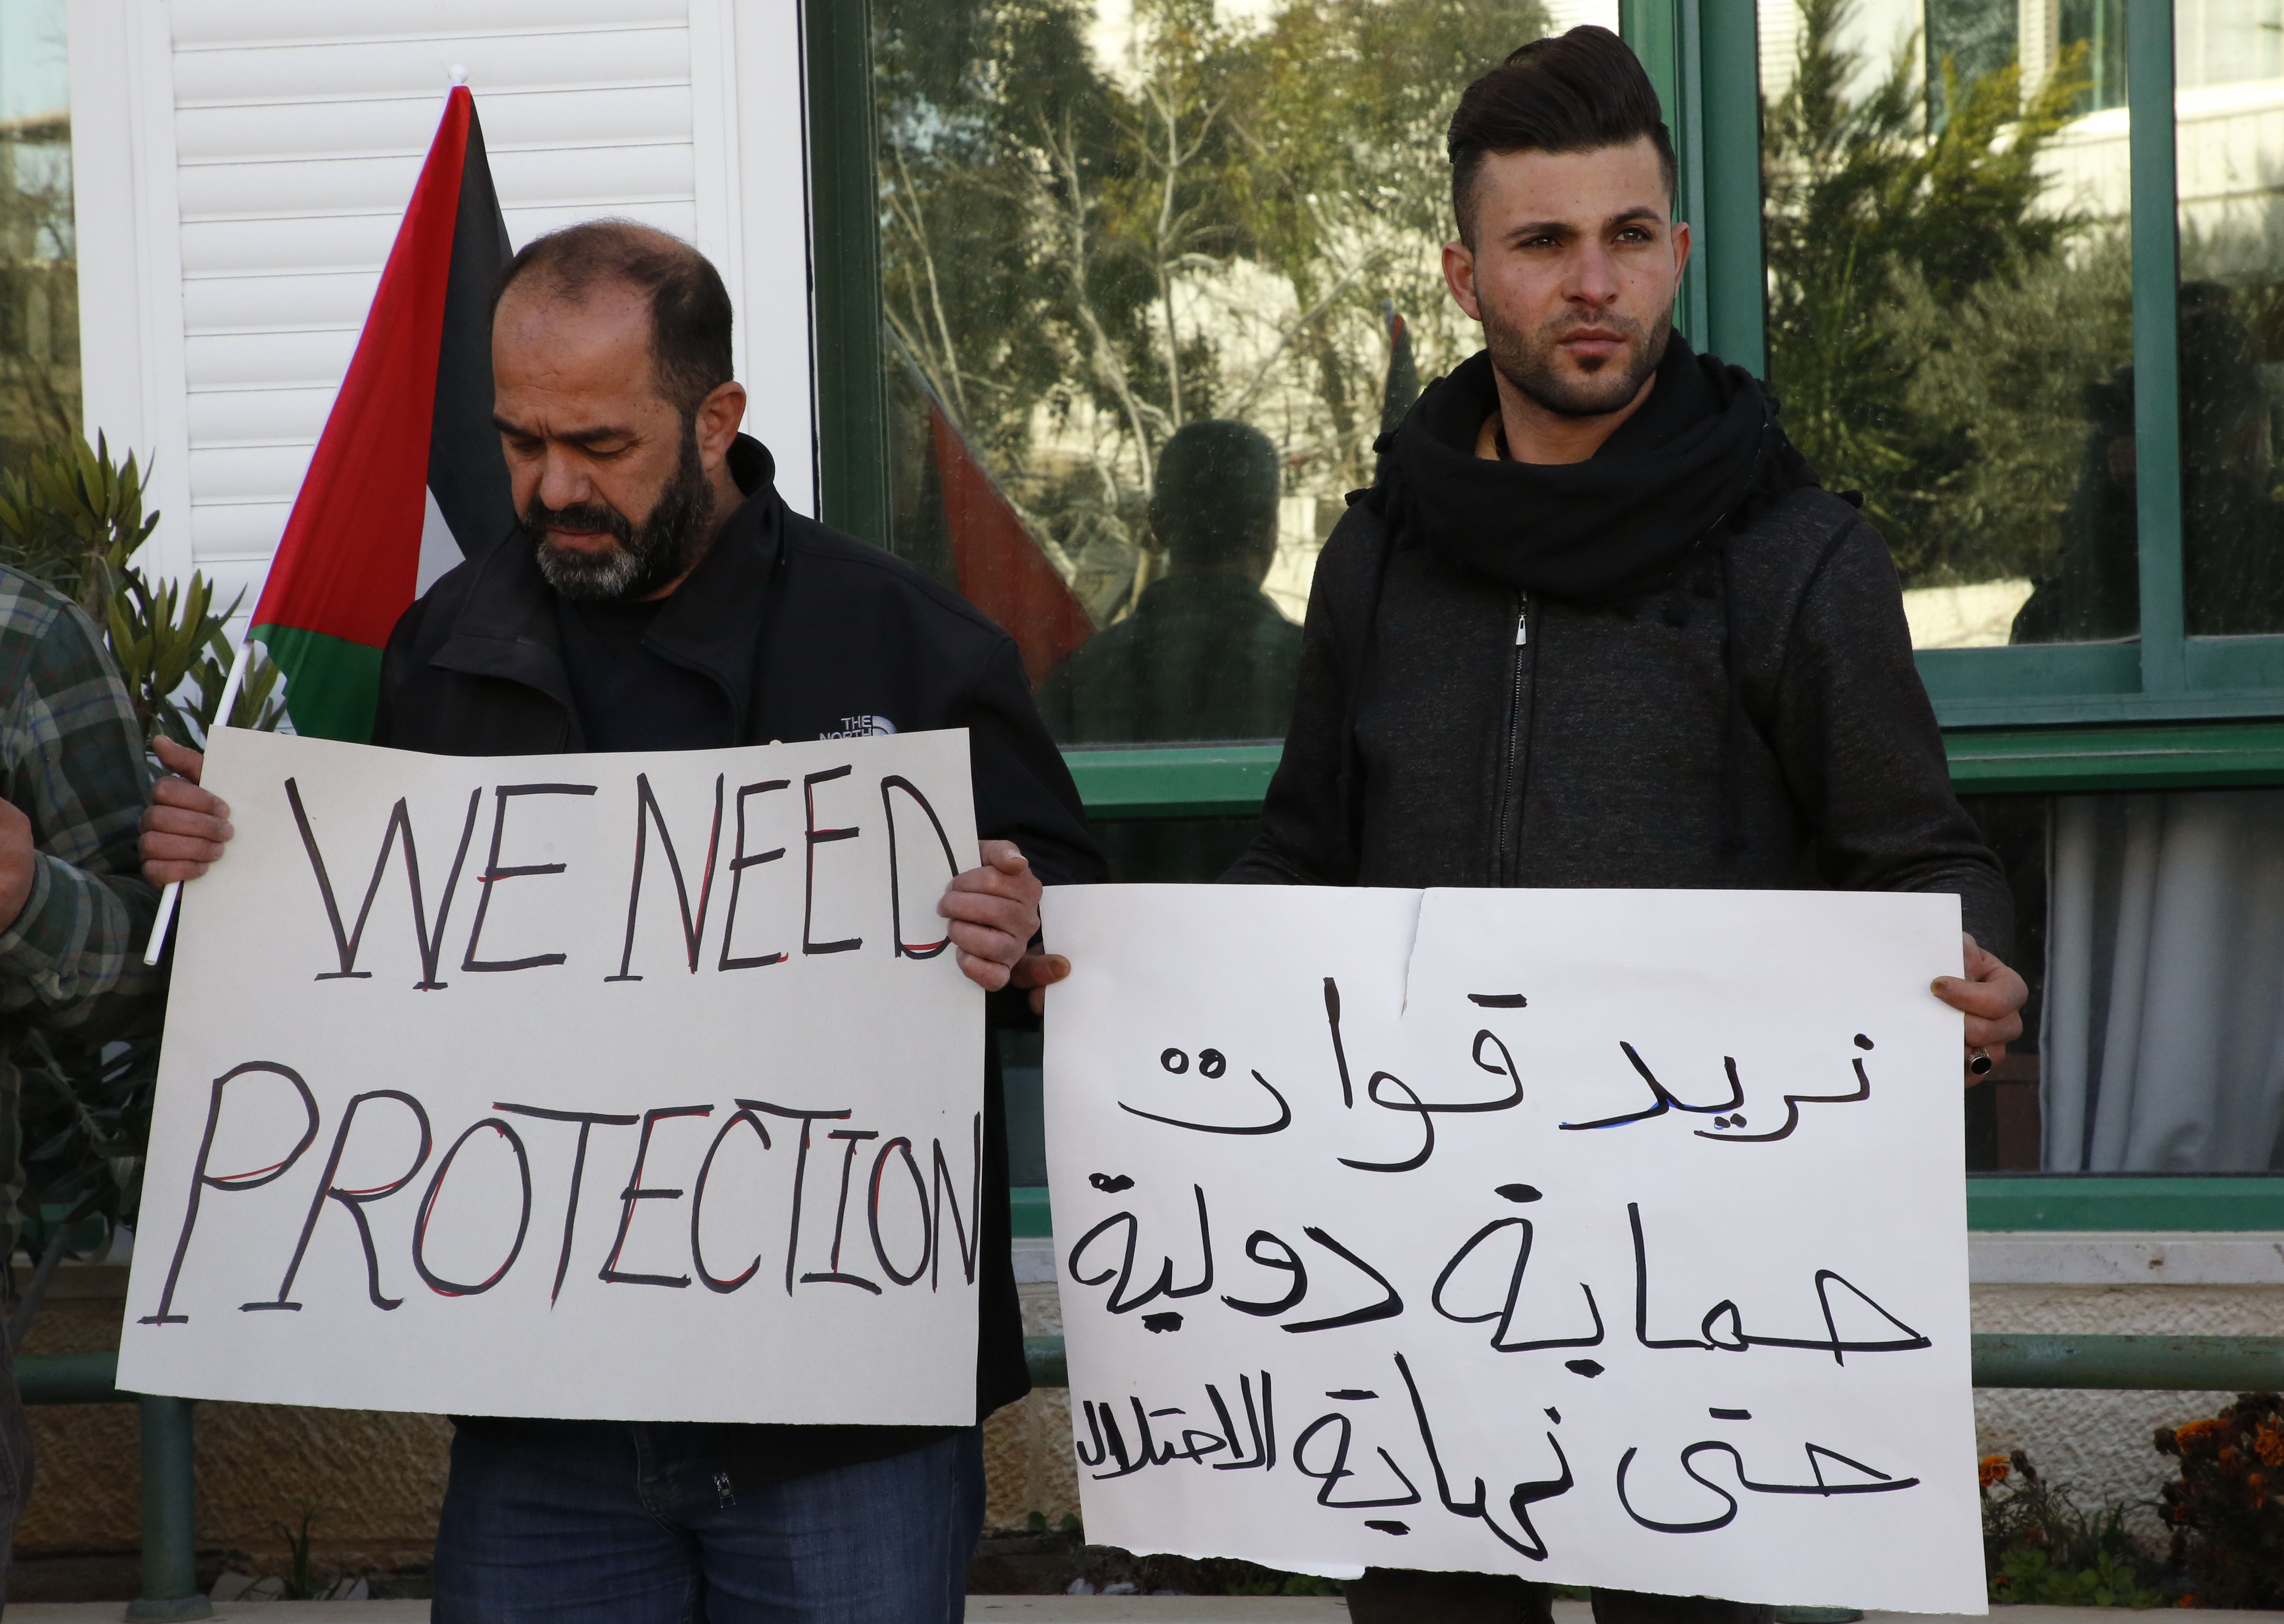 THE
NORTH
WE NEED
PROTECTION
نريد قوات
حماية دولية
حتى نهاية الاحتلال